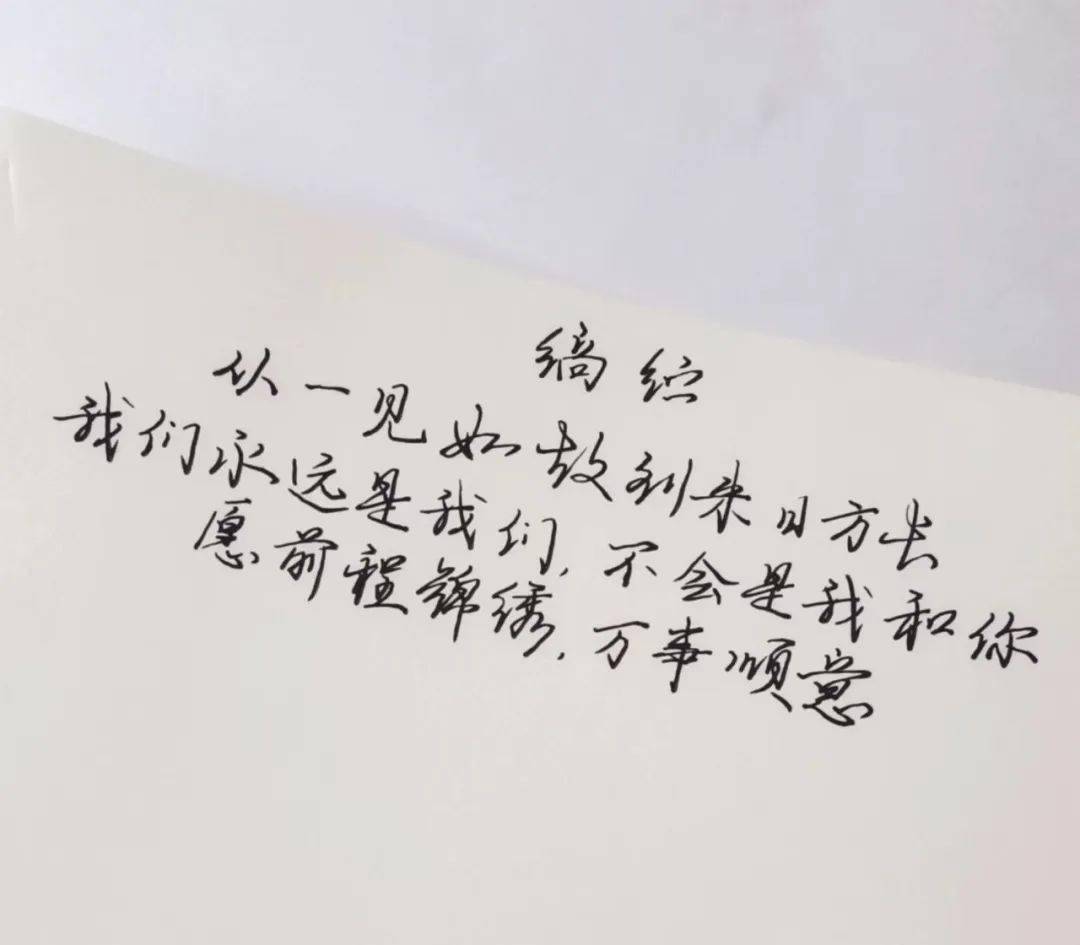 缟纻
从一见如故到来日方长
我们永远是我们,不会是我和你
愿前程锦绣,万事顺意